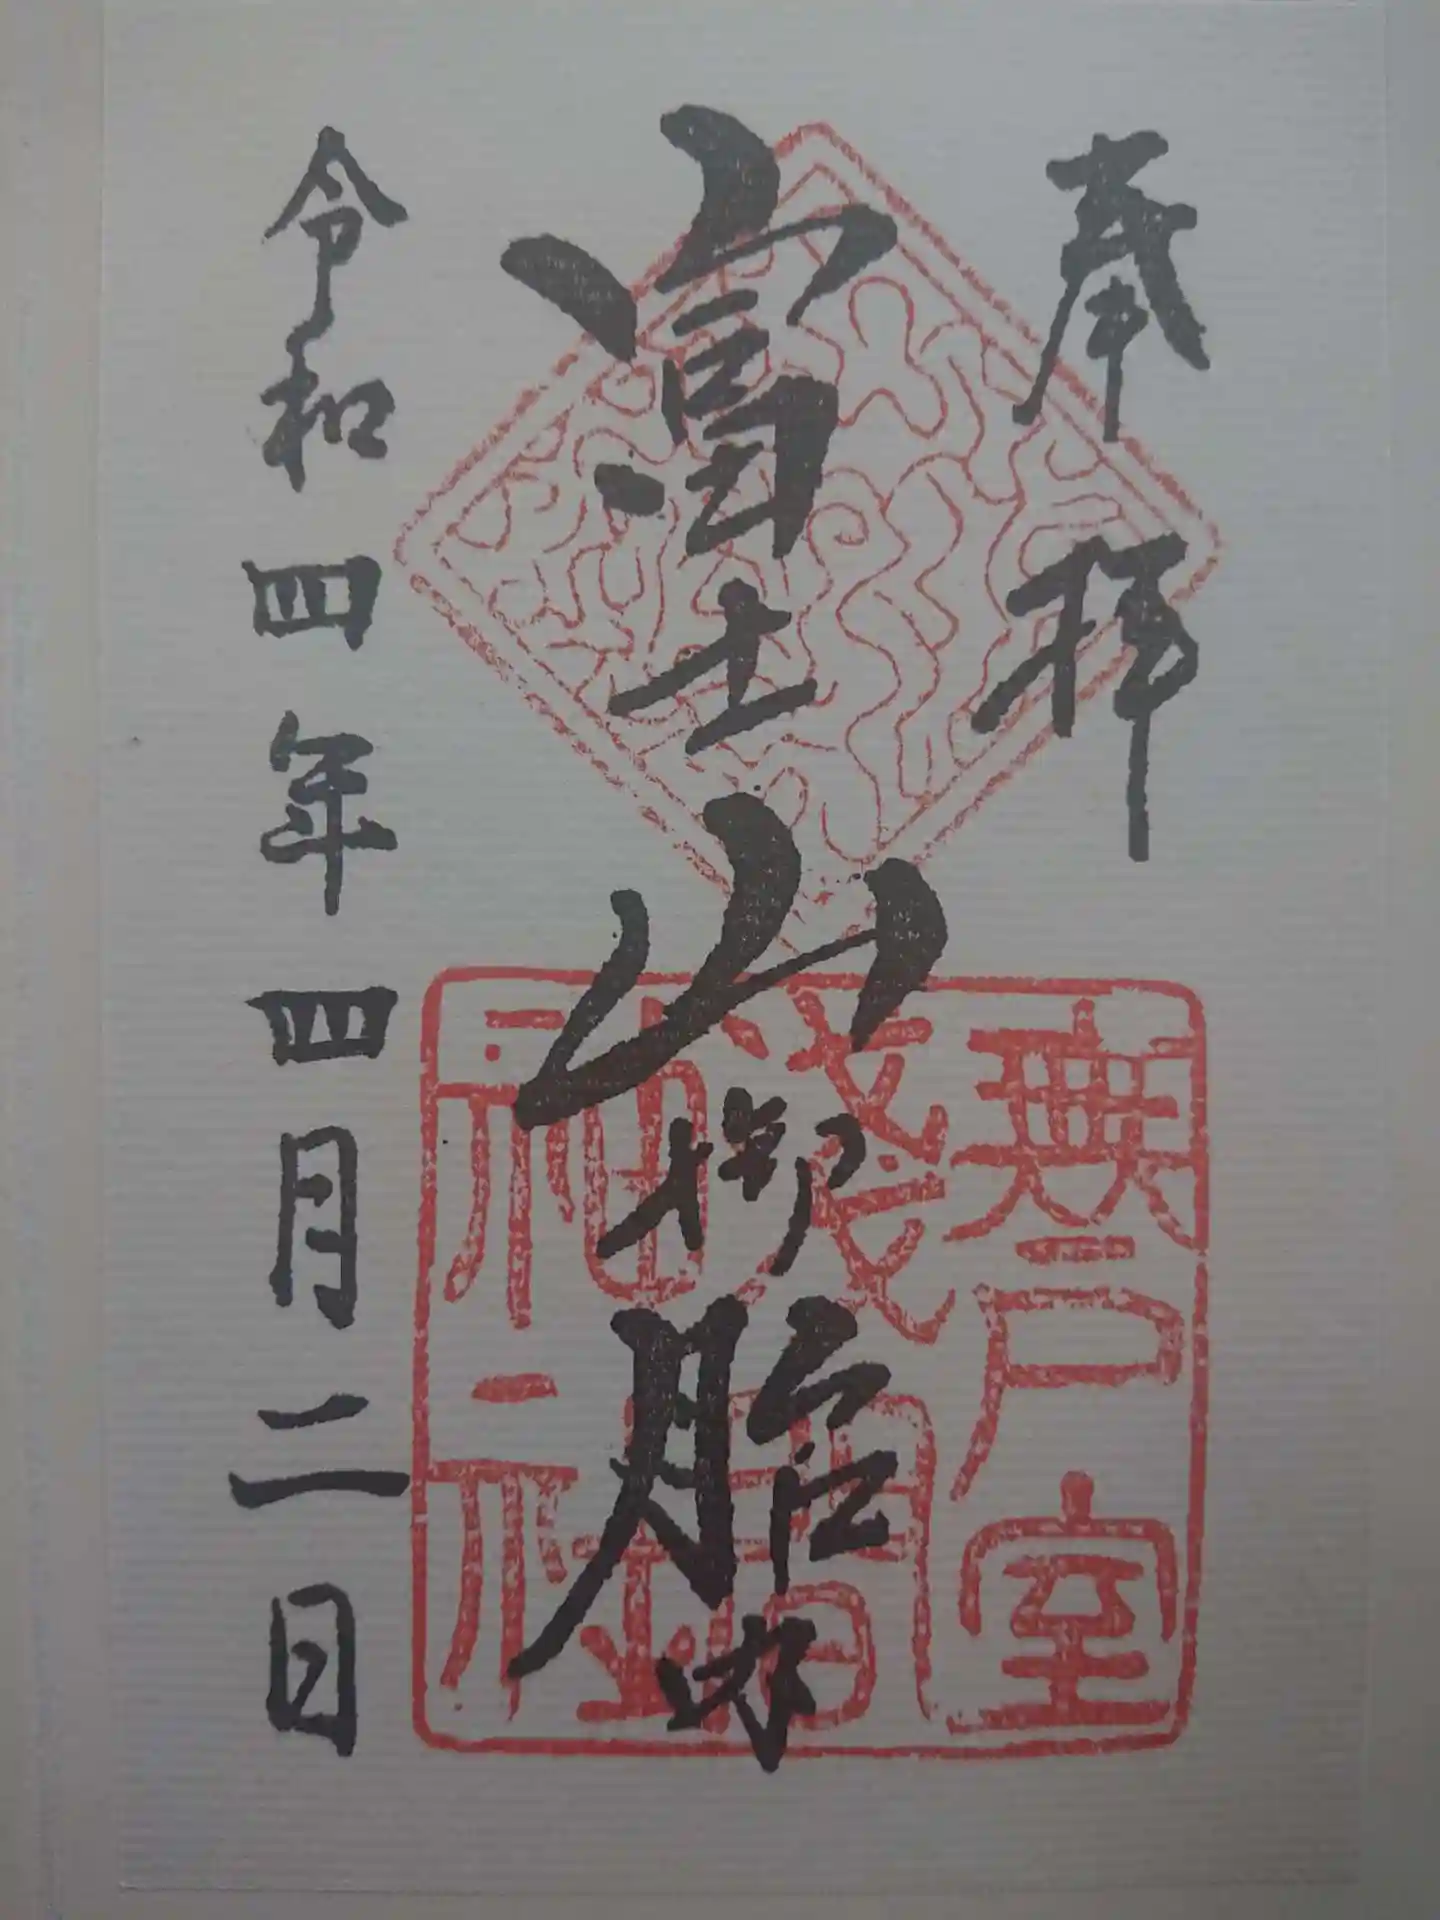 奉拝
富士山御胎内
令和四年四月二日
無戸室
浅間
神社